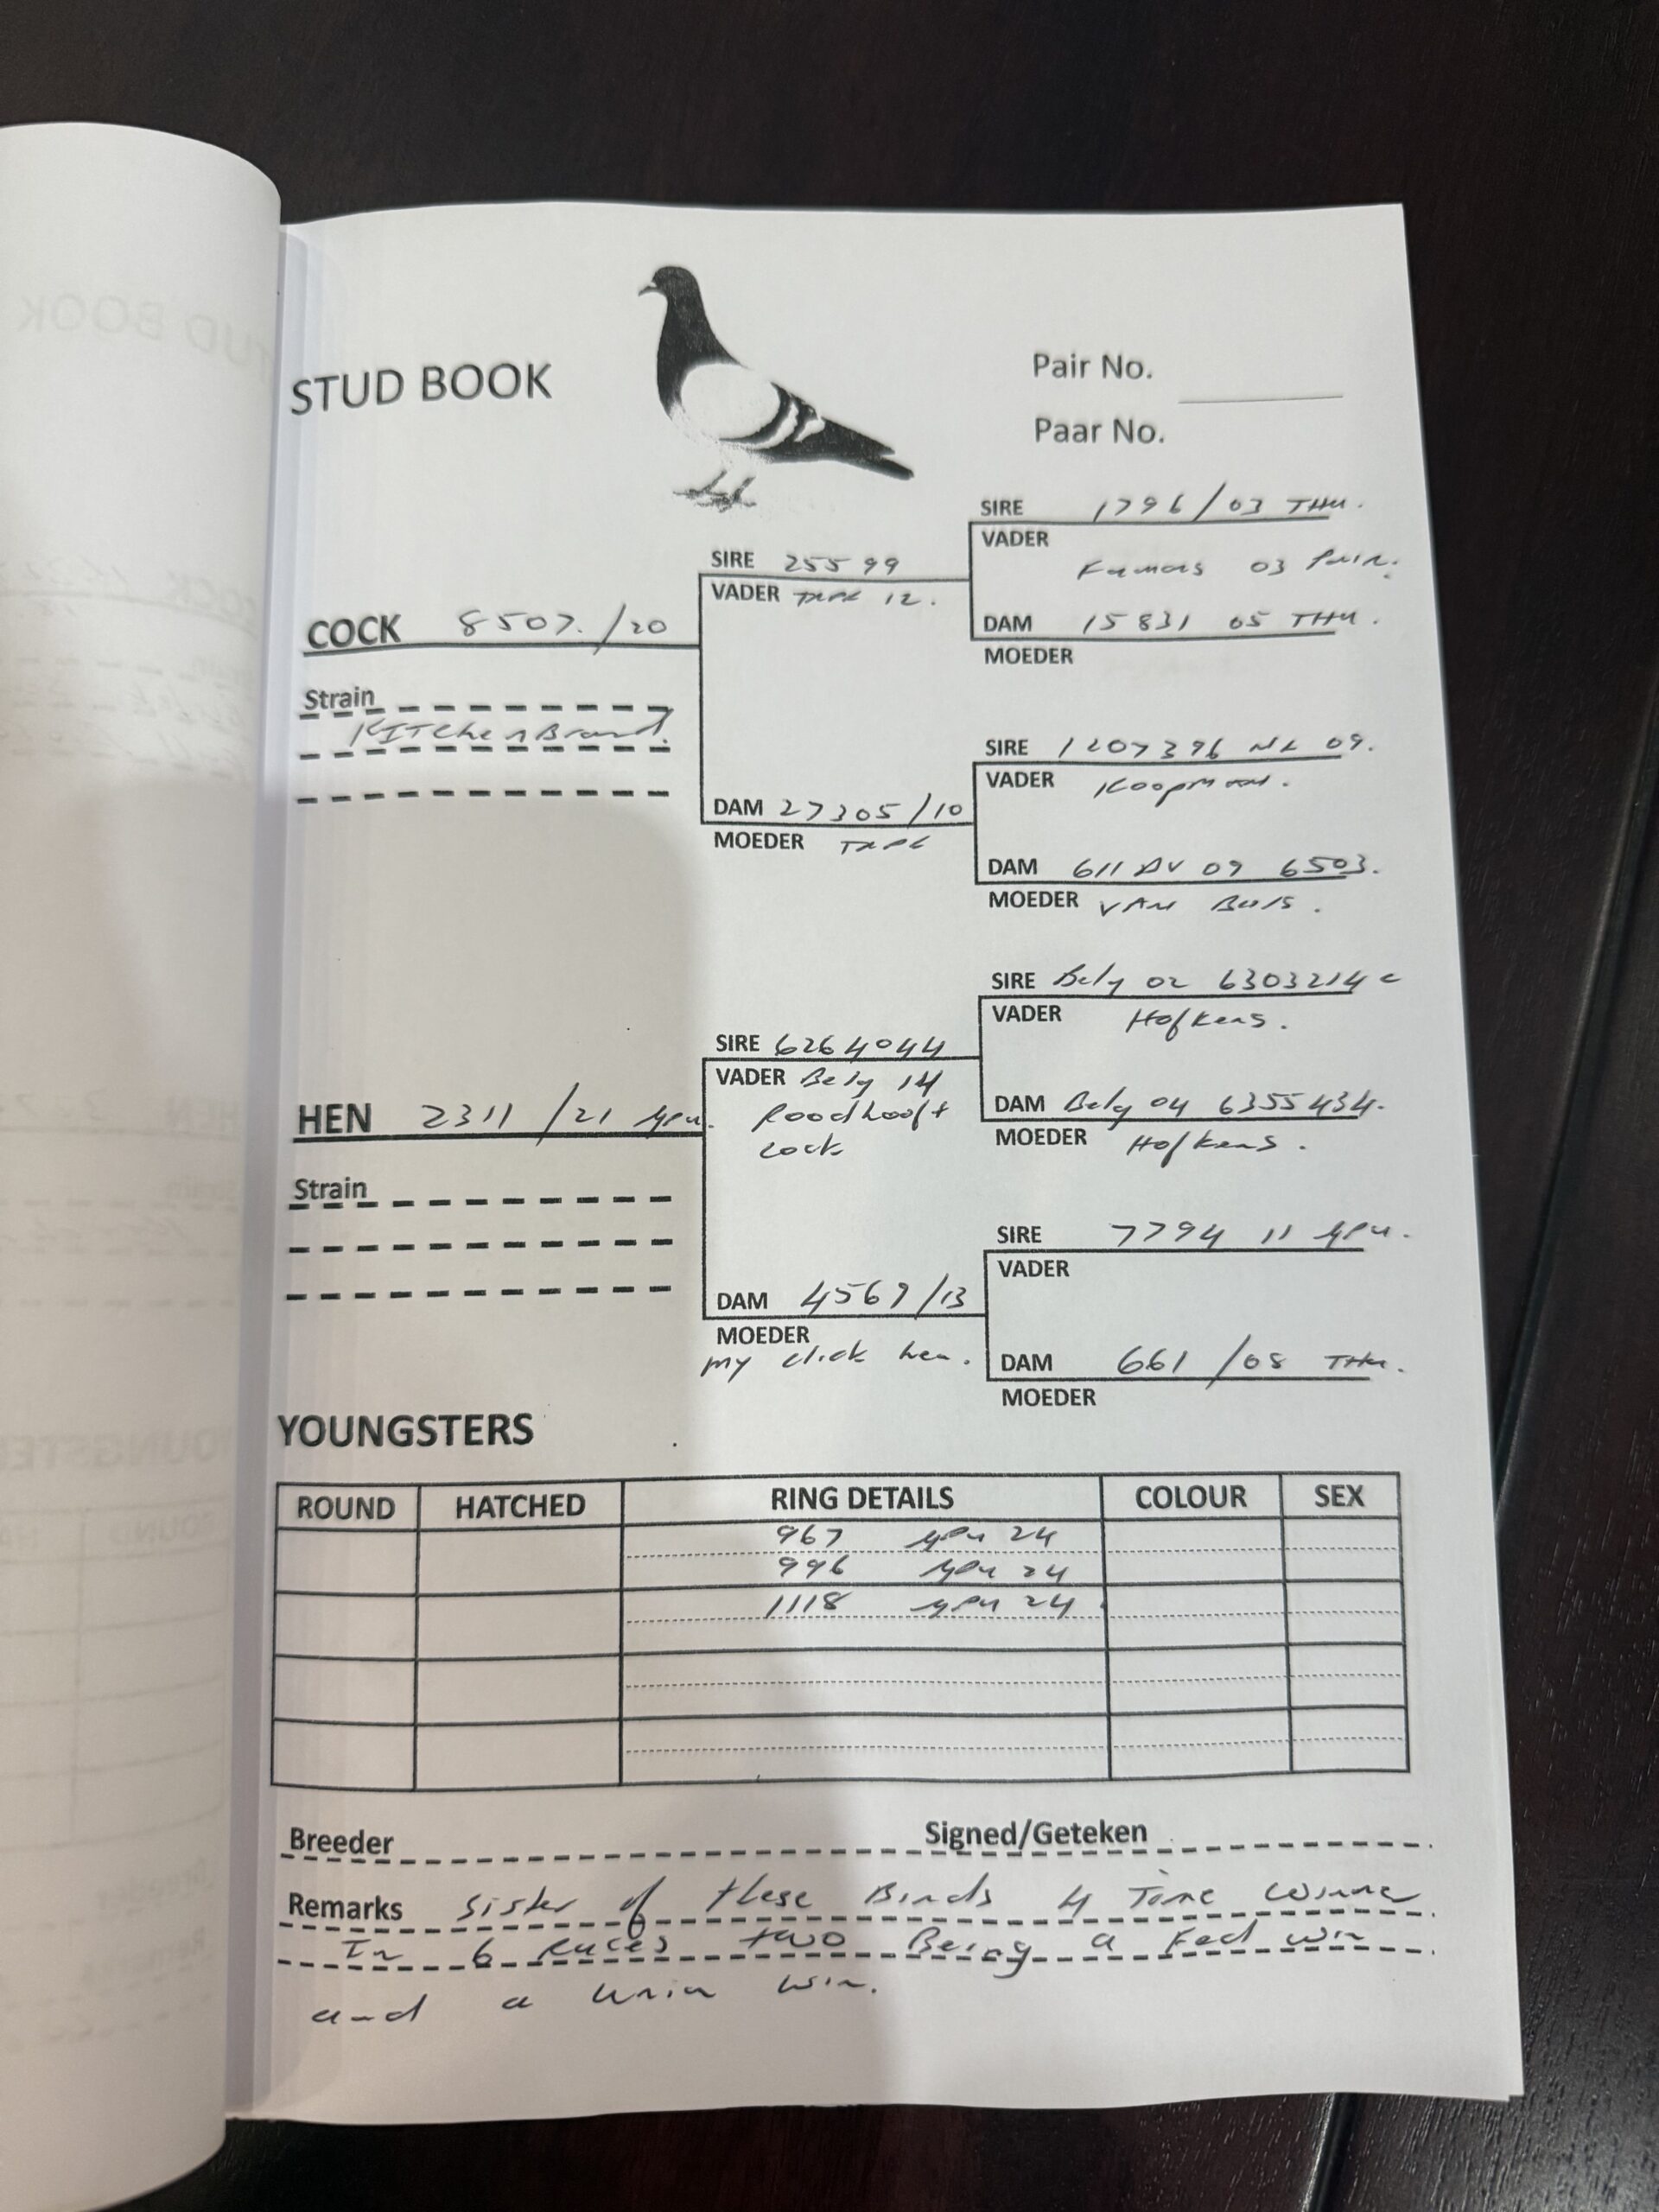 STUD BOOK
Pair No.
Paar No.
COCK 8507. /20
Strain
KITchen Brand.
SIRE 25599
VADER 12.
DAM 27305/10
MOEDER
SIRE 1796/03 THU.
VADER
Famous 03 Pair.
DAM 15831 05 THU.
MOEDER
SIRE 1207396 NL 09.
VADER Koopman.
DAM 611 DV 09 6503.
MOEDER VAN
HEN 2311 /21
Strain
SIRE 6264044
VADER Belg 14
Roodhooft
cock
DAM 4567/13
MOEDER
my click hen.
SIRE Belg 02 6303214
VADER Hofkens.
DAM Belg 04 6355434.
MOEDER Hofkens.
SIRE 7794 11
VADER
DAM 661 /08 THU.
MOEDER
YOUNGSTERS
ROUND HATCHED RING DETAILS COLOUR SEX
967 24
996 24
1118 24
Breeder Signed/Geteken
Remarks Sister of these Birds 4 Time winner
In 6 Races two Being a Fed win
and a union win.